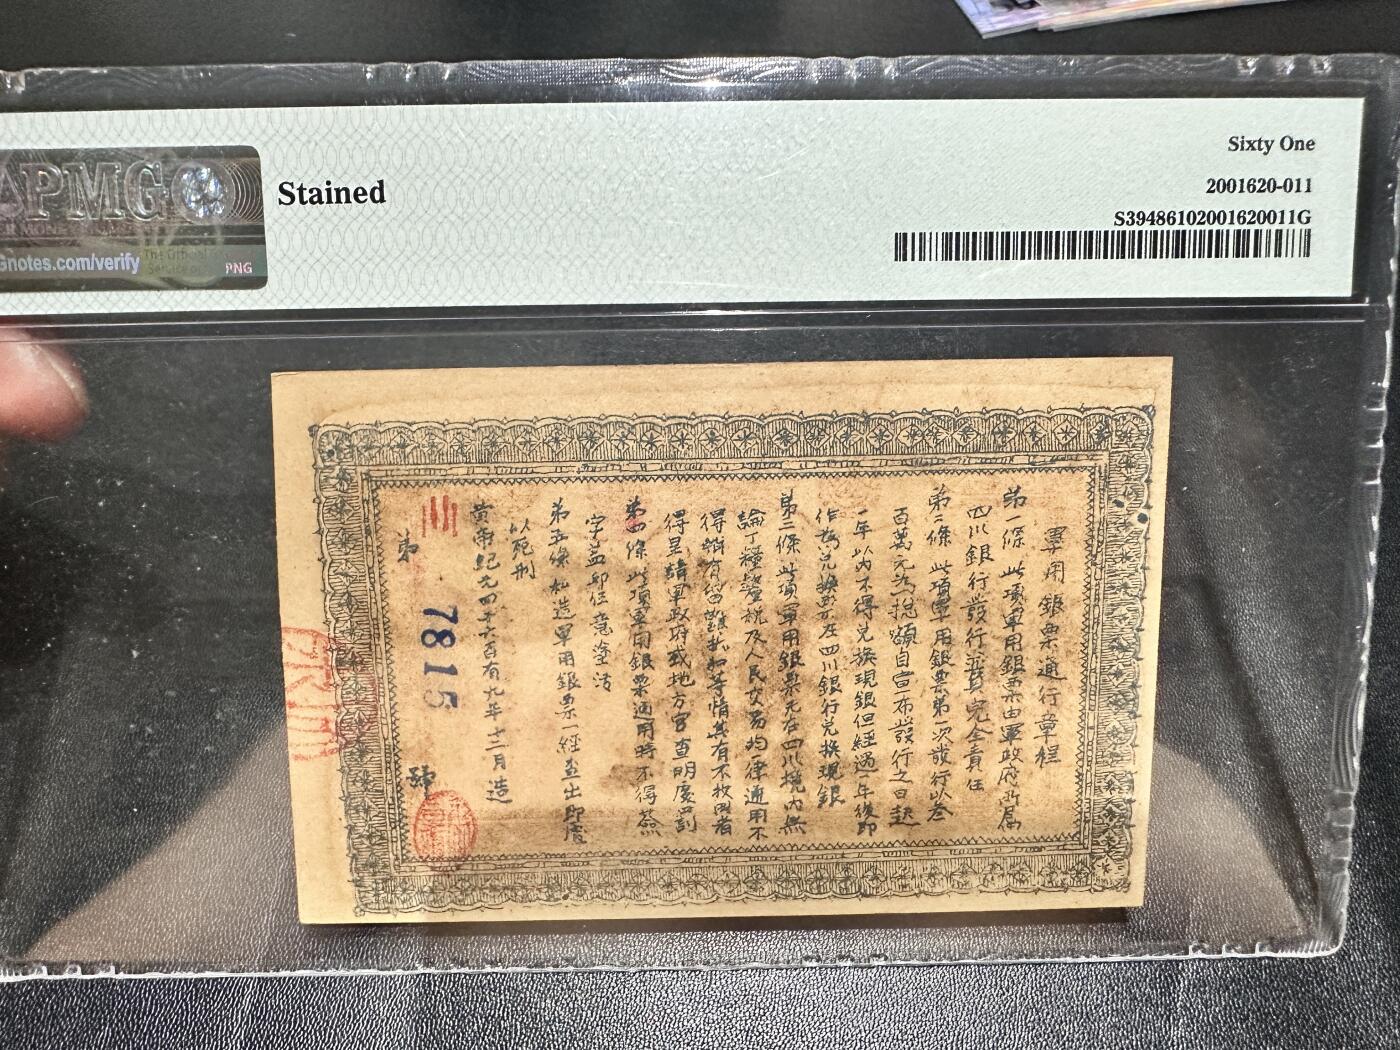 PMG
Gnotes.com/verify
PNG
Stained
Sixty One
2001620-011
S39486102001620011G
軍用銀票通行章程
第一條 此項軍用銀票由軍政府所屬
四川銀行發行並負完全責任
第二條 此項軍用銀票第一次發行以叁
百萬元為總額自宣布發行之日起
一年以內不得兌換現銀但經過一年後即
作為兌換票在四川銀行兌換現銀
第三條 此項軍用銀票凡在四川境內無
論丁糧釐稅及人民交易均一律通用不
得稍有留難折扣等情其有不收用者
得呈請軍政府或地方官查明處罰
第四條 此項軍用銀票通用時不得蓋
字蓋印任意塗污
第五條 私造軍用銀票一經查出即處
以死刑
黃帝紀元四千六百有九年十二月造
三
第
7815
號